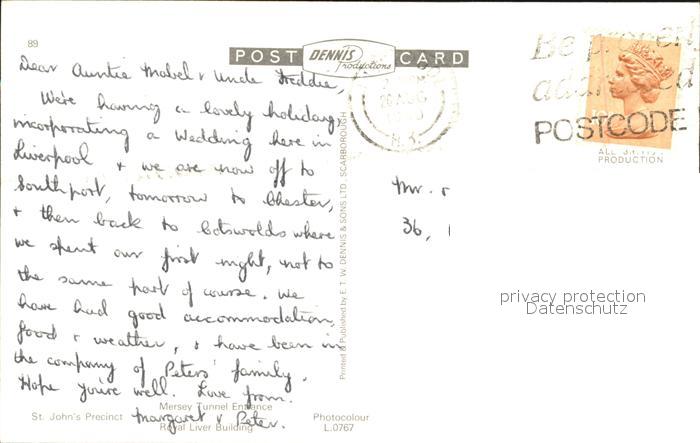 89
POST DENNIS Productions CARD
Dear Auntie Mabel & Uncle Freddie,
We're having a lovely holiday,
incorporating a Wedding here in
Liverpool & we are now off to
Southport, tomorrow to Chester,
& then back to Cotswolds where
we spent our first night, not to
the same part of course. We
have had good accommodation,
food & weather, & have been in
the company of Peters' family.
Hope you're well. Love from.
Margaret & Peter.
St. John's Precinct
Mersey Tunnel Entrance
Royal Liver Building
Photocolour
L.0767
Printed & Published by E. T. W. DENNIS & SONS LTD., SCARBOROUGH
AUG
Be
POSTCODE
ALL
PRODUCTION
Mr.
36,
privacy protection
Datenschutz